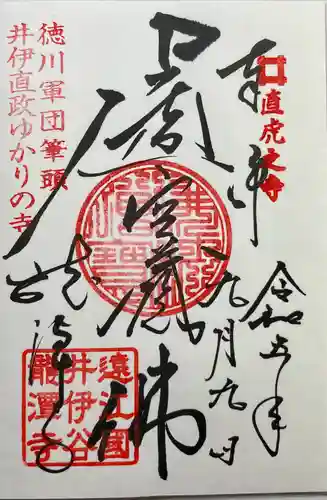 奉拝
直虎之寺
令和五年
九月九日
虚空蔵佛
龍潭寺
徳川軍団筆頭
井伊直政ゆかりの寺
遠江國
井伊谷
龍潭寺